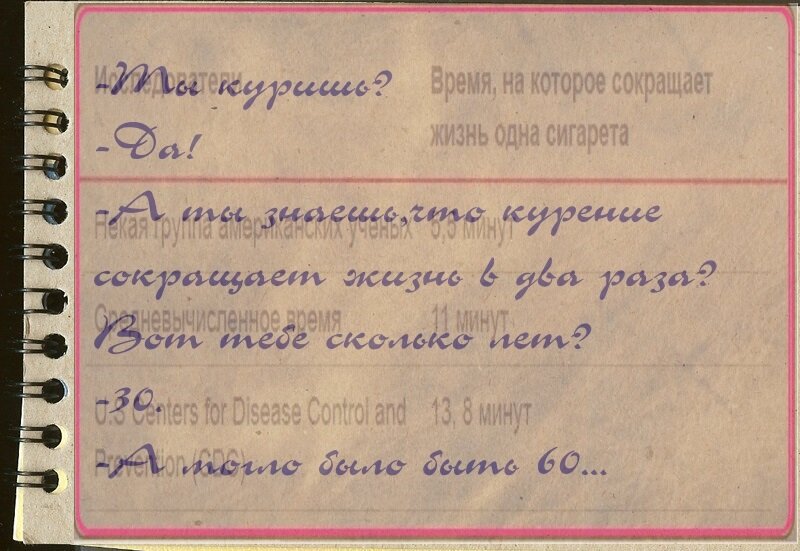 -Ты куришь?
-Да!
-А ты знаешь,что курение
сокращает жизнь в два раза?
Вот тебе сколько лет?
-30.
-А могло было быть 60...
Исследователи
Время, на которое сокращает
жизнь одна сигарета
Некая группа американских ученых 5,5 минут
Средневычисленное время 11 минут
U.S Centers for Disease Control and 13, 8 минут
Prevention (CDC)